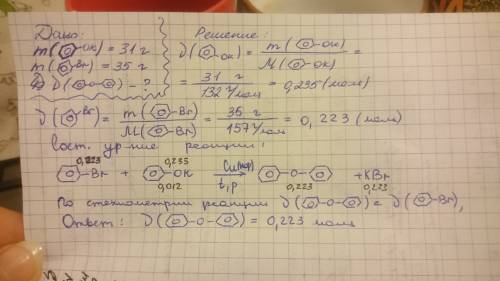 Дано:
m(⌬-OK) = 31 г
m(⌬-Br) = 35 г
ν(⌬-O-⌬) - ?
Решение:
ν(⌬-OK) = m(⌬-OK) / M(⌬-OK) =
= 31 г / 132 г/моль = 0,235 (моль)
ν(⌬-Br) = m(⌬-Br) / M(⌬-Br) = 35 г / 157 г/моль = 0,223 (моль)
ур-ние реакции:
0,223 0,235
⌬-Br + ⌬-OK → ⌬-O-⌬ + KBr
t, p
0,012 0,223 0,223
По стехиометрии реакции ν(⌬-O-⌬) = ν(⌬-Br),
Ответ: ν(⌬-O-⌬) = 0,223 моль